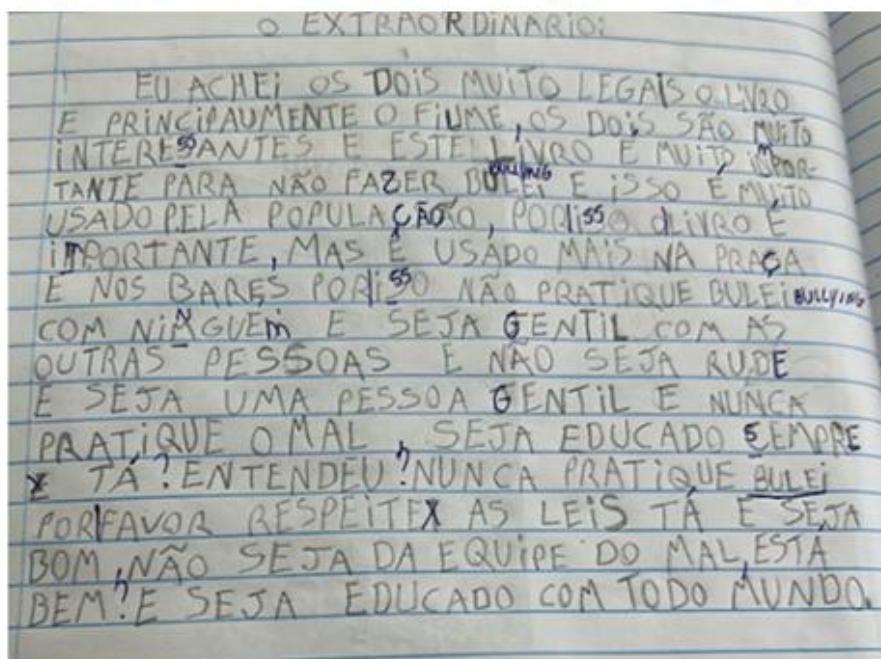 O EXTRAORDINARIO:
EU ACHEI OS DOIS MUITO LEGAIS O LIVRO
E PRINCIPAUMENTE O FIUME, OS DOIS SÃO MUITO
INTERESSANTES E ESTE LIVRO E MUITO IMPOR-
TANTE PARA NÃO FAZER BULEI BULLYING E ISSO É MUITO
USADO PELA POPULAÇÃO, POR ISSO O LIVRO É
IMPORTANTE, MAS É USADO MAIS NA PRAÇA
E NOS BARES POR ISSO NÃO PRATIQUE BULEI BULLYING
COM NINGUEM E SEJA GENTIL COM AS
OUTRAS PESSOAS E NÃO SEJA RUDE
E SEJA UMA PESSOA GENTIL E NUNCA
PRATIQUE O MAL, SEJA EDUCADO SEMPRE
E TÁ? ENTENDEU? NUNCA PRATIQUE BULEI
POR FAVOR RESPEITE AS LEIS TÁ E SEJA
BOM, NÃO SEJA DA EQUIPE DO MAL, ESTÁ
BEM? E SEJA EDUCADO COM TODO MUNDO.